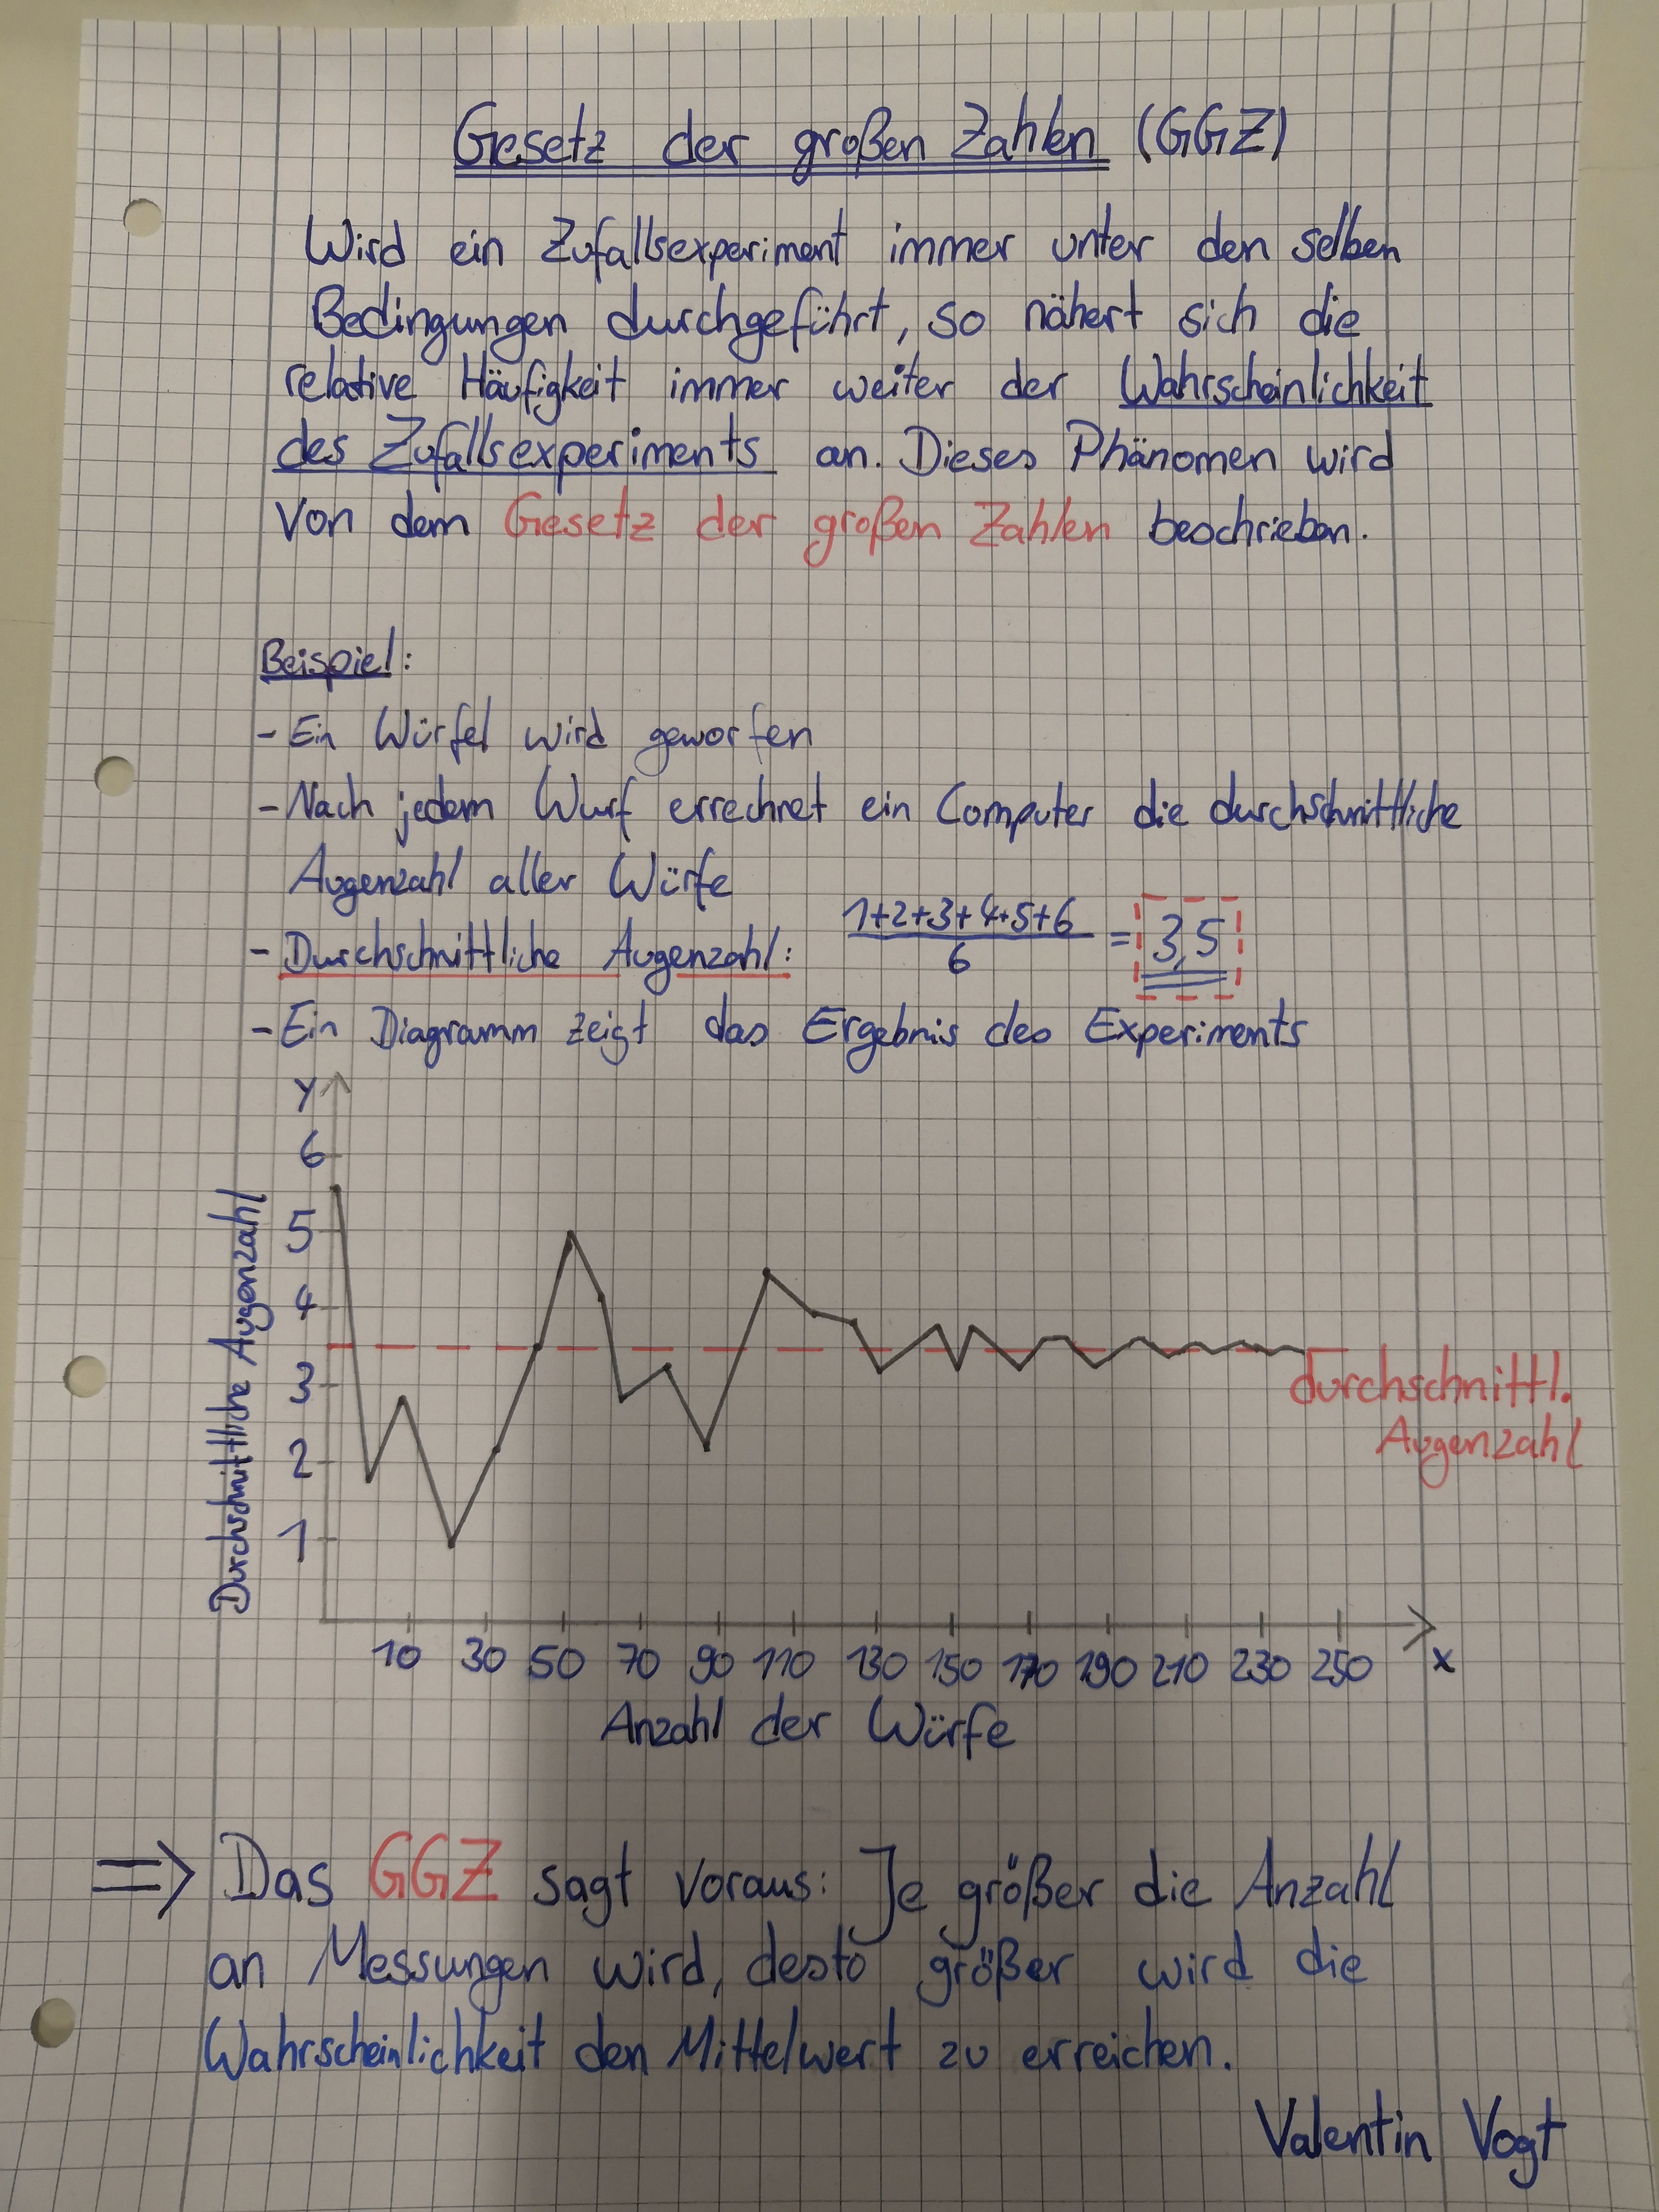 Gesetz der großen Zahlen (GGZ)
Wird ein Zufallsexperiment immer unter den selben
Bedingungen durchgeführt, so nähert sich die
relative Häufigkeit immer weiter der Wahrscheinlichkeit
des Zufallsexperiments an. Dieses Phänomen wird
von dem Gesetz der großen Zahlen beschrieben.
Beispiel:
- Ein Würfel wird geworfen
- Nach jedem Wurf errechnet ein Computer die durchschnittliche
Augenzahl aller Würfe
- Durchschnittliche Augenzahl: 1+2+3+4+5+6 / 6 = 3,5
- Ein Diagramm zeigt das Ergebnis des Experiments
Y
6
5
4
3
2
1
Durchschnittliche Augenzahl
durchschnittl.
Augenzahl
10 30 50 70 90 110 130 150 170 190 210 230 250 x
Anzahl der Würfe
=> Das GGZ sagt voraus: Je größer die Anzahl
an Messungen wird, desto größer wird die
Wahrscheinlichkeit den Mittelwert zu erreichen.
Valentin Vogt